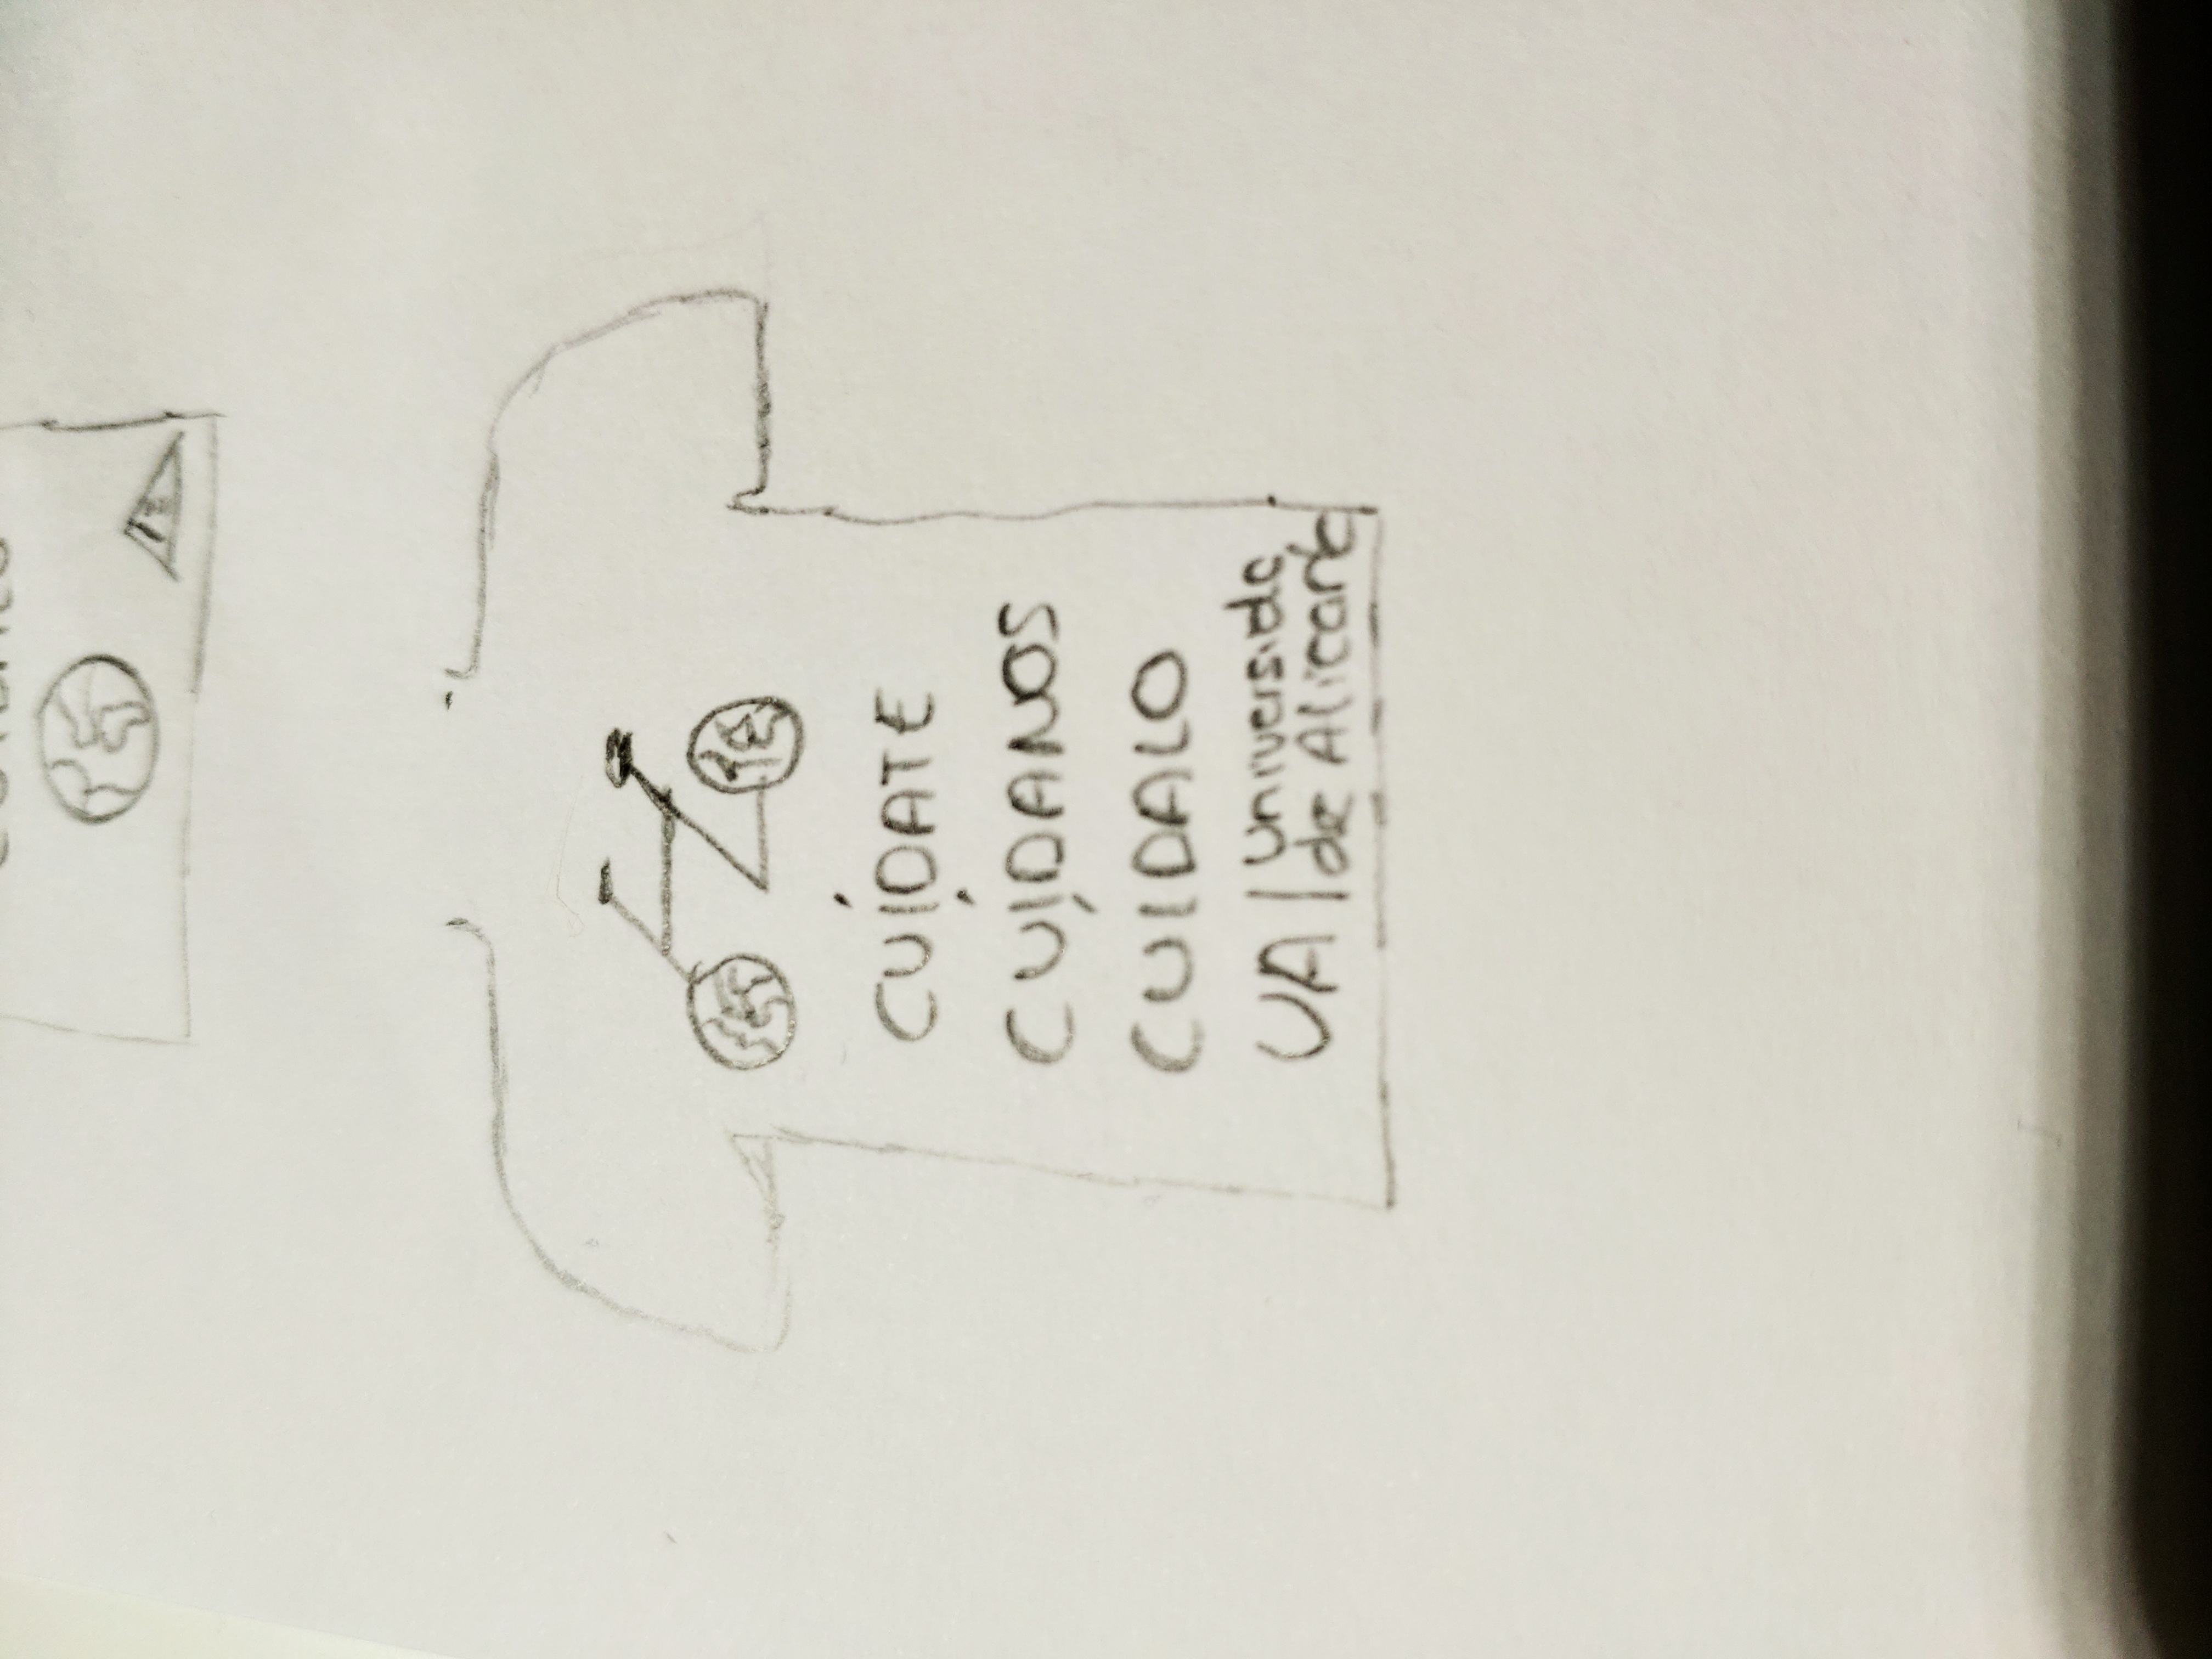 CUÍDATE
CUÍDANOS
CUÍDALO
UA | Universida
de Alicante